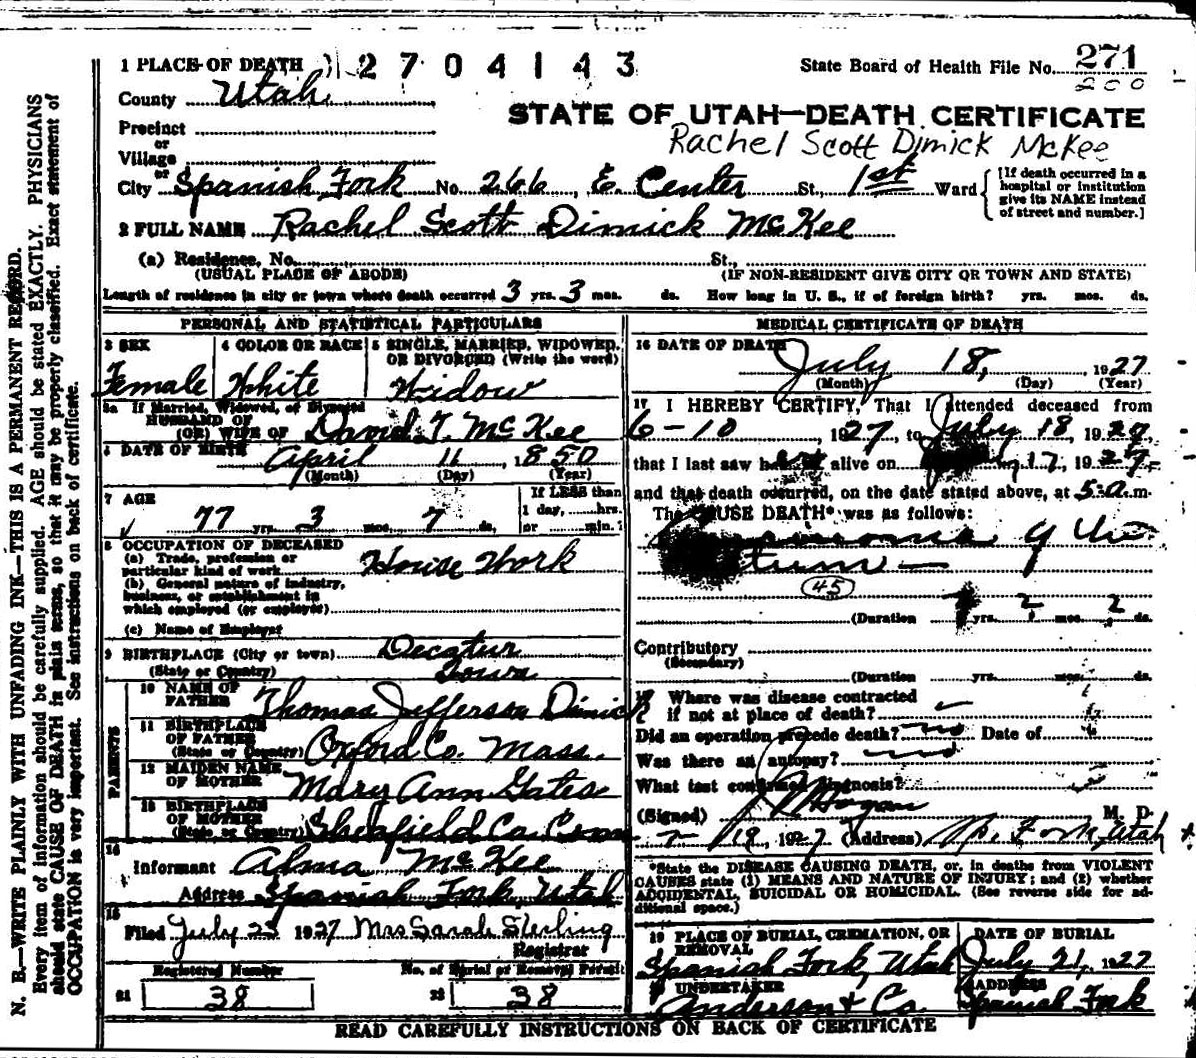 1 PLACE OF DEATH 2704143 State Board of Health File No. 271
County Utah 200
STATE OF UTAH—DEATH CERTIFICATE
Precinct
or
Village
Rachel Scott Dimick McKee
or
City Spanish Fork No. 266 E. Center St., 1st Ward
[If death occurred in a
hospital or institution
give its NAME instead
of street and number.]
2 FULL NAME Rachel Scott Dimick McKee
(a) Residence, No. St.,
(USUAL PLACE OF ABODE) (IF NON-RESIDENT GIVE CITY OR TOWN AND STATE)
Length of residence in city or town where death occurred 3 yrs. 3 mos. ds. How long in U. S., if of foreign birth? yrs. mos. ds.
PERSONAL AND STATISTICAL PARTICULARS
3 SEX
Female
4 COLOR OR RACE
White
5 SINGLE, MARRIED, WIDOWED,
OR DIVORCED (Write the word)
Widow
5a If Married, Widowed, or Divorced
HUSBAND OF
(OR) WIFE OF David T. McKee
6 DATE OF BIRTH April 11, 1850
(Month) (Day) (Year)
7 AGE
77 yrs. 3 mos. 7 ds.
If LESS than
1 day, ......hrs.
or ......min.?
8 OCCUPATION OF DECEASED
(a) Trade, profession or
particular kind of work House Work
(b) General nature of industry,
business, or establishment in
which employed (or employer)
(c) Name of Employer
9 BIRTHPLACE (City or town) Decatur
(State or Country) Iowa
PARENTS
10 NAME OF
FATHER Thomas Jefferson Dimick
11 BIRTHPLACE
OF FATHER
(State or Country) Oxford Co. Mass.
12 MAIDEN NAME
OF MOTHER Mary Ann Gates
13 BIRTHPLACE
OF MOTHER
(State or Country) Sheafield Co. Conn
14
Informant Alma McKee
Address Spanish Fork, Utah
15
Filed July 23 1927 Mrs Sarah Sterling
Registrar
Registered Number
21 38
No. of Burial or Removal Permit
22 38
MEDICAL CERTIFICATE OF DEATH
16 DATE OF DEATH
July 18, 1927
(Month) (Day) (Year)
17 I HEREBY CERTIFY, That I attended deceased from
6-10, 1927, to July 18, 1927
that I last saw her alive on 17, 1927
and that death occurred, on the date stated above, at 5:a.m.
The CAUSE DEATH* was as follows:
45
(Duration yrs. 2 mos. 2 ds.
Contributory
(Secondary)
(Duration yrs. mos. ds.
18 Where was disease contracted
if not at place of death?
Did an operation precede death? no Date of
Was there an autopsy? no
What test confirmed diagnosis?
(Signed) Hogan M. D.
7-19, 1927 (Address) Sp. Fork, Utah
*State the DISEASE CAUSING DEATH, or, in deaths from VIOLENT
CAUSES state (1) MEANS AND NATURE OF INJURY; and (2) whether
ACCIDENTAL, SUICIDAL OR HOMICIDAL. (See reverse side for ad-
ditional space.)
19 PLACE OF BURIAL, CREMATION, OR
REMOVAL
Spanish Fork, Utah
DATE OF BURIAL
July 21, 1927
20 UNDERTAKER
Anderson & Co.
ADDRESS
Spanish Fork
READ CAREFULLY INSTRUCTIONS ON BACK OF CERTIFICATE
N. B.—WRITE PLAINLY WITH UNFADING INK—THIS IS A PERMANENT RECORD.
Every item of information should be carefully supplied. AGE should be stated EXACTLY. PHYSICIANS
should state CAUSE OF DEATH in plain terms, so that it may be properly classified. Exact statement of
OCCUPATION is very important. See instructions on back of certificate.